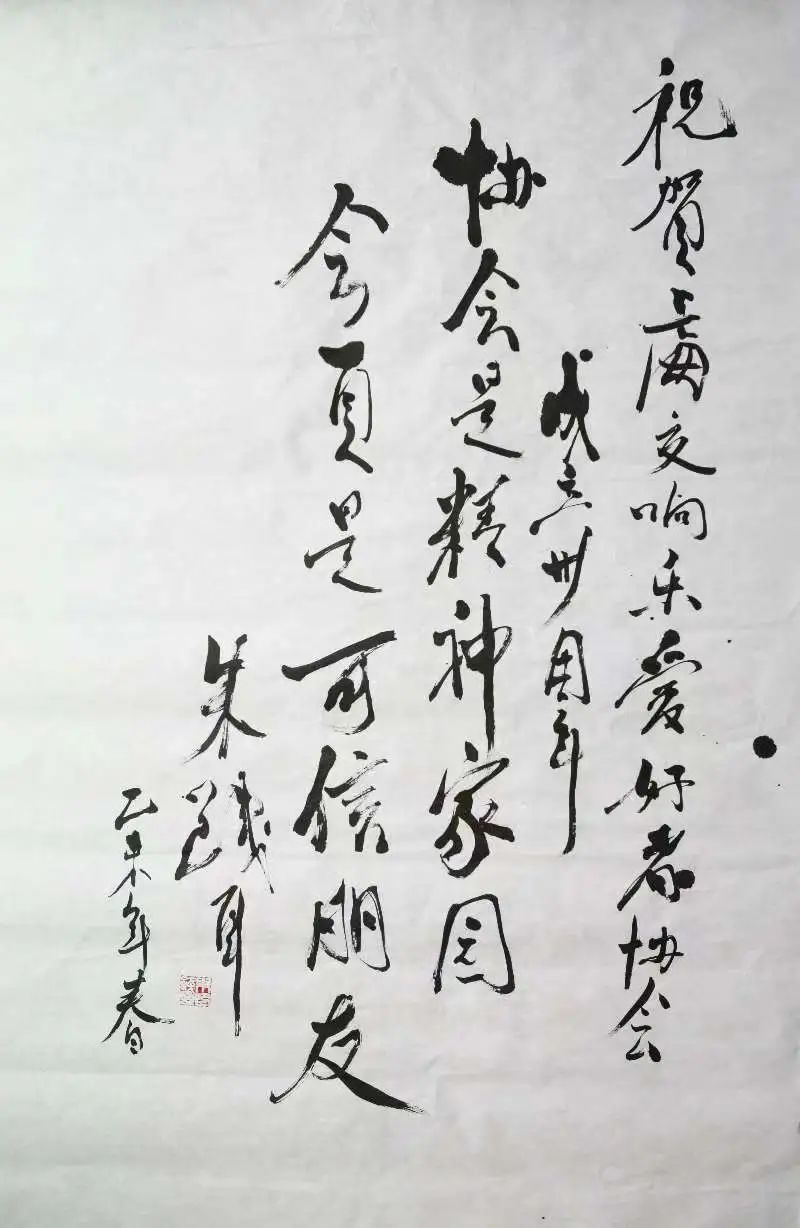 祝賀上海交响乐愛好者协会
成立卅周年
协会是精神家园
会員是可信朋友
朱践耳
乙未年春